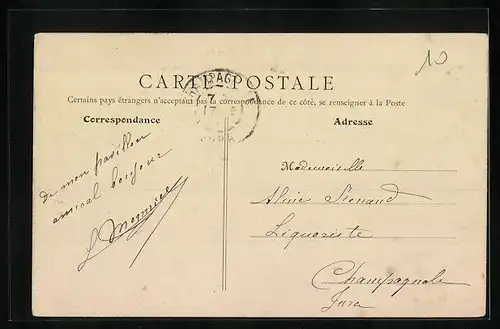 10
CARTE POSTALE
Certains pays étrangers n'acceptant pas la correspondance de ce côté, se renseigner à la Poste
Correspondance
Adresse
de mon pavillon
amical bonjour
Mademoiselle
Aline
Liquoriste
Champagnole
Jura